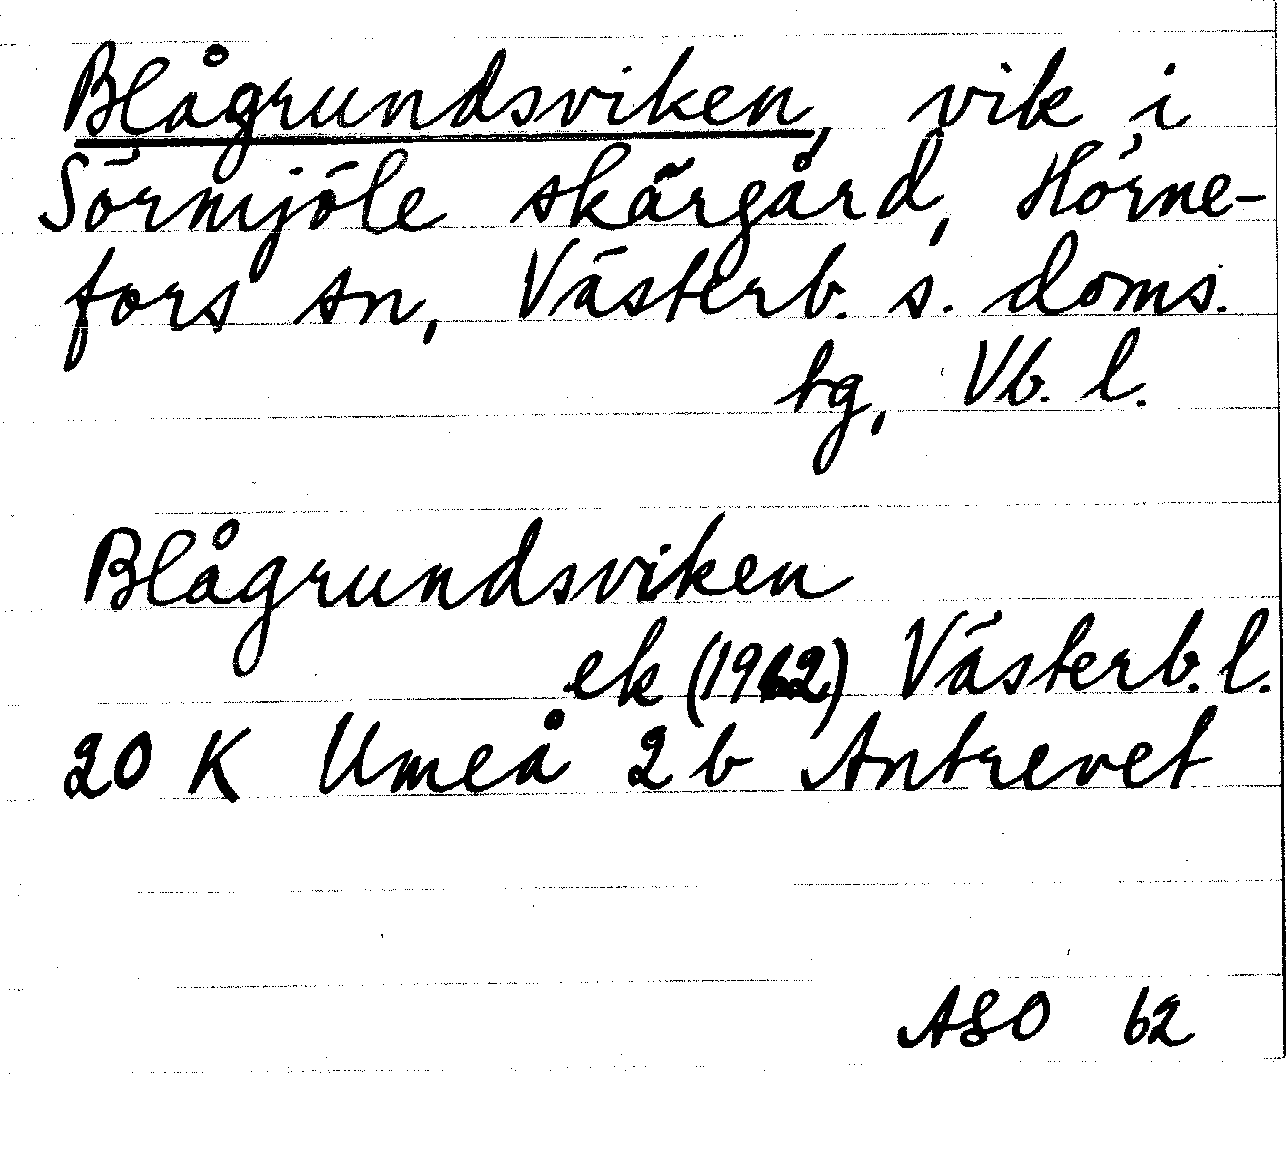 Blågrundsviken, vik i
Sörmjöle skärgård, Hörne-
fors sn, Västerb. s. doms.
tg, Vb. l.
Blågrundsviken
ek (1962) Västerb. l.
20 K Umeå 2 b Antrevet
ASO 62